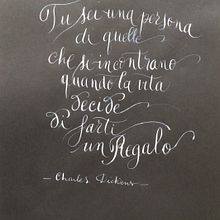 Tu sei una persona
di quelle
che si incontrano
quando la vita
decide
di farti
un Regalo
- Charles Dickens -